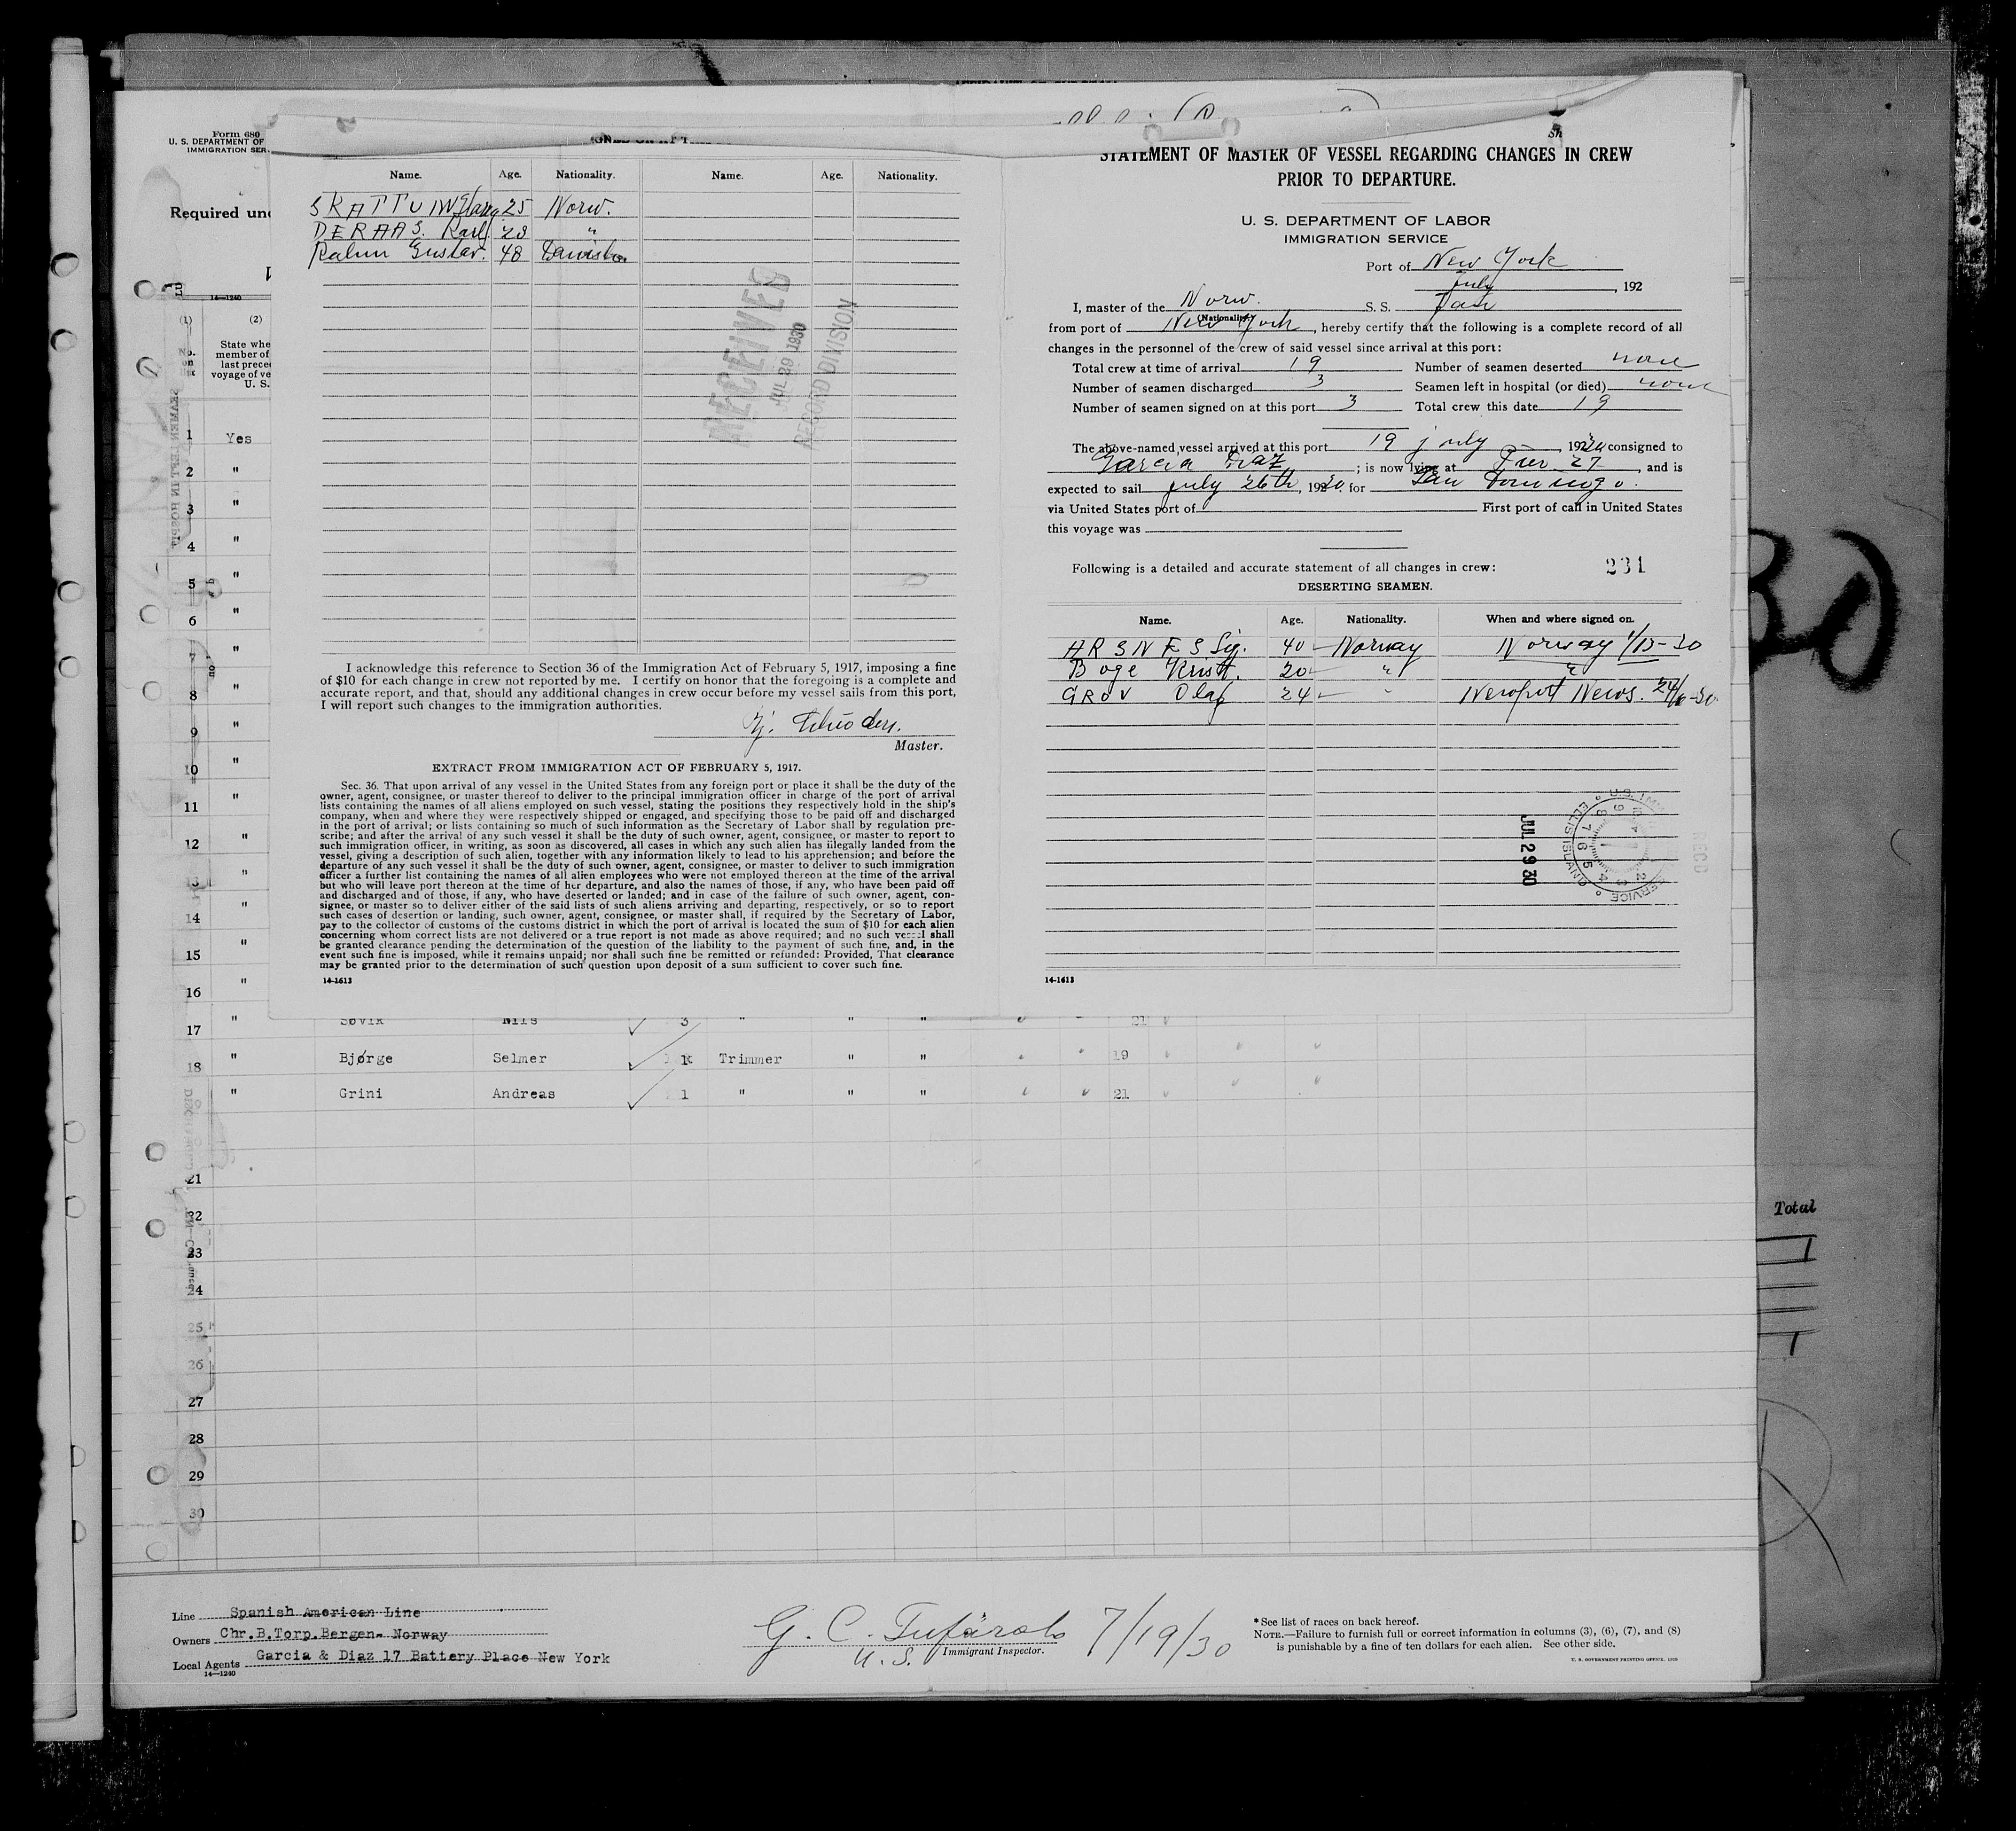 Form 680
U. S. DEPARTMENT OF
IMMIGRATION SER
Required und
14—1240
(1)
(2)
State whe
member of
last prece
voyage of ve
U. S.
1 Yes
2 "
3 "
4 "
5 "
6 "
7 "
8 "
9 "
10 "
11 "
12 "
13 "
14 "
15 "
16 "
17 " Søvik Nils 3 " " " 21
18 " Bjørge Selmer 1 Trimmer " " 19
" Grini Andreas 1 " " " 21
21
22
23
24
25
26
27
28
29
30
Line Spanish American Line
Owners Chr.B.Torp.Bergen- Norway
Local Agents Garcia & Diaz 17 Battery Place New York
14—1240
G. C.
U. S. Immigrant Inspector.
7/19/30
* See list of races on back hereof.
NOTE.—Failure to furnish full or correct information in columns (3), (6), (7), and (8)
is punishable by a fine of ten dollars for each alien. See other side.
U. S. GOVERNMENT PRINTING OFFICE
Name. Age. Nationality. Name. Age. Nationality.
25 Norw.
DERAAS. Karl 28 "
Gustav. 48 Danish
RECEIVED
JUL 29 1930
RECORD DIVISION
I acknowledge this reference to Section 36 of the Immigration Act of February 5, 1917, imposing a fine
of $10 for each change in crew not reported by me. I certify on honor that the foregoing is a complete and
accurate report, and that, should any additional changes in crew occur before my vessel sails from this port,
I will report such changes to the immigration authorities.
Master.
EXTRACT FROM IMMIGRATION ACT OF FEBRUARY 5, 1917.
Sec. 36. That upon arrival of any vessel in the United States from any foreign port or place it shall be the duty of the
owner, agent, consignee, or master thereof to deliver to the principal immigration officer in charge of the port of arrival
lists containing the names of all aliens employed on such vessel, stating the positions they respectively hold in the ship's
company, when and where they were respectively shipped or engaged, and specifying those to be paid off and discharged
in the port of arrival; or lists containing so much of such information as the Secretary of Labor shall by regulation pre-
scribe; and after the arrival of any such vessel it shall be the duty of such owner, agent, consignee, or master to report to
such immigration officer, in writing, as soon as discovered, all cases in which any such alien has illegally landed from the
vessel, giving a description of such alien, together with any information likely to lead to his apprehension; and before the
departure of any such vessel it shall be the duty of such owner, agent, consignee, or master to deliver to such immigration
officer a further list containing the names of all alien employees who were not employed thereon at the time of the arrival
but who will leave port thereon at the time of her departure, and also the names of those, if any, who have been paid off
and discharged and of those, if any, who have deserted or landed; and in case of the failure of such owner, agent, con-
signee, or master so to deliver either of the said lists of such aliens arriving and departing, respectively, or so to report
such cases of desertion or landing, such owner, agent, consignee, or master shall, if required by the Secretary of Labor,
pay to the collector of customs of the customs district in which the port of arrival is located the sum of $10 for each alien
concerning whom correct lists are not delivered or a true report is not made as above required; and no such vessel shall
be granted clearance pending the determination of the question of the liability to the payment of such fine, and, in the
event such fine is imposed, while it remains unpaid; nor shall such fine be remitted or refunded: Provided, That clearance
may be granted prior to the determination of such question upon deposit of a sum sufficient to cover such fine.
14-1613
STATEMENT OF MASTER OF VESSEL REGARDING CHANGES IN CREW
PRIOR TO DEPARTURE.
U. S. DEPARTMENT OF LABOR
IMMIGRATION SERVICE
Port of New York
July , 192
I, master of the Norw. S. S.
(Nationality)
from port of New York, hereby certify that the following is a complete record of all
changes in the personnel of the crew of said vessel since arrival at this port:
Total crew at time of arrival 19 Number of seamen deserted none
Number of seamen discharged 3 Seamen left in hospital (or died) none
Number of seamen signed on at this port 3 Total crew this date 19
The above-named vessel arrived at this port 19 july, 1930, consigned to
Garcia Diaz; is now lying at Pier 27, and is
expected to sail july 26th, 1930. for San Domingo.
via United States port of First port of call in United States
this voyage was
Following is a detailed and accurate statement of all changes in crew: 231
DESERTING SEAMEN.
Name. Age. Nationality. When and where signed on.
ARSNES Sig. 40 Norway Norway 1/15-30
Boge Krist. 20 " "
GROV Olaf 24 " Newport News.
JUL 29 30
ELLIS ISLAND
14-1613
Total